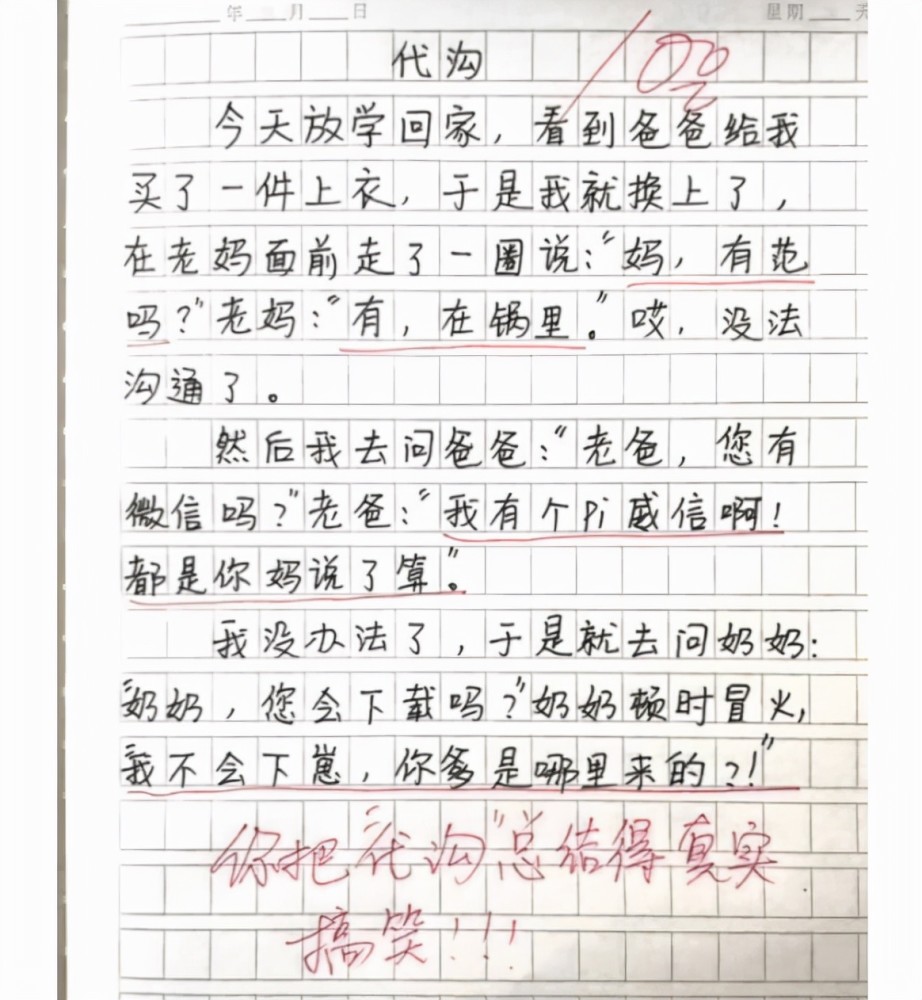 年 月 日 星期 天
代沟
100
今天放学回家，看到爸爸给我
买了一件上衣，于是我就换上了，
在老妈面前走了一圈说：“妈，有范
吗？”老妈：“有，在锅里。”哎，没法
沟通了。
然后我去问爸爸：“老爸，您有
微信吗？”老爸：“我有个Pi威信啊！
都是你妈说了算”。
我没办法了，于是就去问奶奶：
“奶奶，您会下载吗？”奶奶顿时冒火，
“我不会下崽，你爹是哪里来的？！”
你把“代沟”总结得真实
搞笑！！！